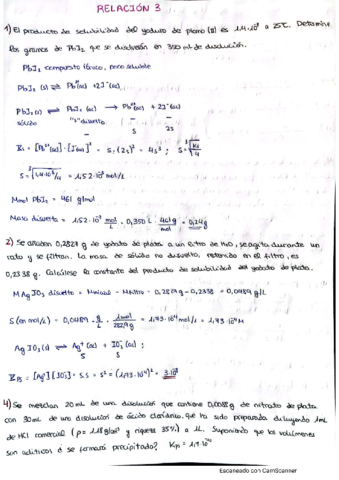 RELACIÓN 3
1) El producto de solubilidad del yoduro de plomo (II) es 1,4·10⁻⁸ a 25℃. Determine
los gramos de PbI₂ que se disolverán en 350 ml de disolución.
PbI₂ compuesto iónico, poco soluble
PbI₂ (s) ⇌ Pb²⁺(ac) + 2I⁻(ac)
PbI₂(s) ⇌ PbI₂ (ac) → Pb²⁺(ac) + 2I⁻(ac)
sólido "I" disuelto s 2s
Ks = [Pb²⁺(ac)]·[I⁻(ac)]² = s·(2s)² = 4s³ ; s = ∛Ks/4
s = ∛1,4·10⁻⁸/4 = 1,52·10⁻³ mol/L
Mmol PbI₂ = 461 g/mol
Masa disuelta = 1,52·10⁻³ mol/L · 0,350 L · 461 g/mol = 0,24 g
2) Se añaden 0,2829 g de yodato de plata a un litro de H₂O, se agita durante un
rato y se filtran. La masa de sólido no disuelto, retenido en el filtro, es
0,2338 g. Calcúlese la constante del producto de solubilidad del yodato de plata.
M AgIO₃ disuelto = Minicial - Mfiltro = 0,2829 - 0,2338 = 0,0489 g/L
S (en mol/L) = 0,0489 · g/L · 1mol/282,9g = 1,73·10⁻⁴ mol/L = 1,73·10⁻⁴ M
AgIO₃ (s) ⇌ Ag⁺(ac) + IO₃⁻(ac) ;
s s
Kps = [Ag⁺][IO₃⁻] = s·s = s² = (1,73·10⁻⁴)² = 3·10⁻⁸
4) Se mezclan 20 mL de una disolución que contiene 0,0088 g de nitrato de plata
con 30 mL de una disolución de ácido clorhídrico que ha sido preparada diluyendo 1mL
de HCl comercial (ρ = 1,18 g/cm³ y riqueza 35%) a 1L. Suponiendo que los volúmenes
son aditivos ¿ se formará precipitado? Kps = 1,7·10⁻¹⁰
Escaneado con CamScanner